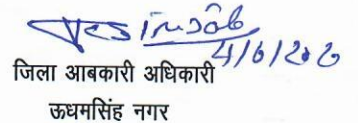 4/6/2020
जिला आबकारी अधिकारी
ऊधमसिंह नगर